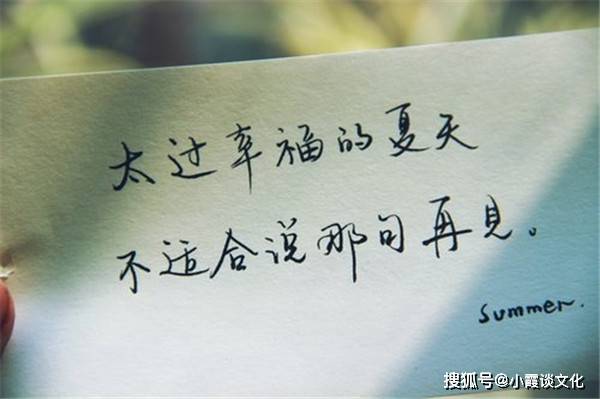 太过幸福的夏天
不适合说那句再见。
summer.
搜狐号@小霞谈文化